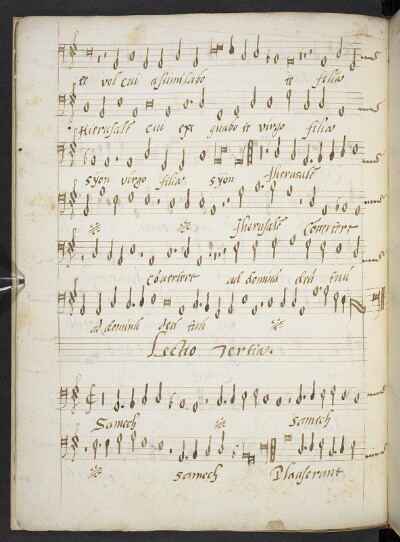 te vel cui asimilabo te filia
Hierusalē cui exe quabo te virgo filia
syon virgo filia syon Iherusalē
Iherusalē cōvertere
cōvertere ad dominū deū tuū
ad dominū deū tuū
Lectio Tertia.
Samech Samech
samech Plauserunt